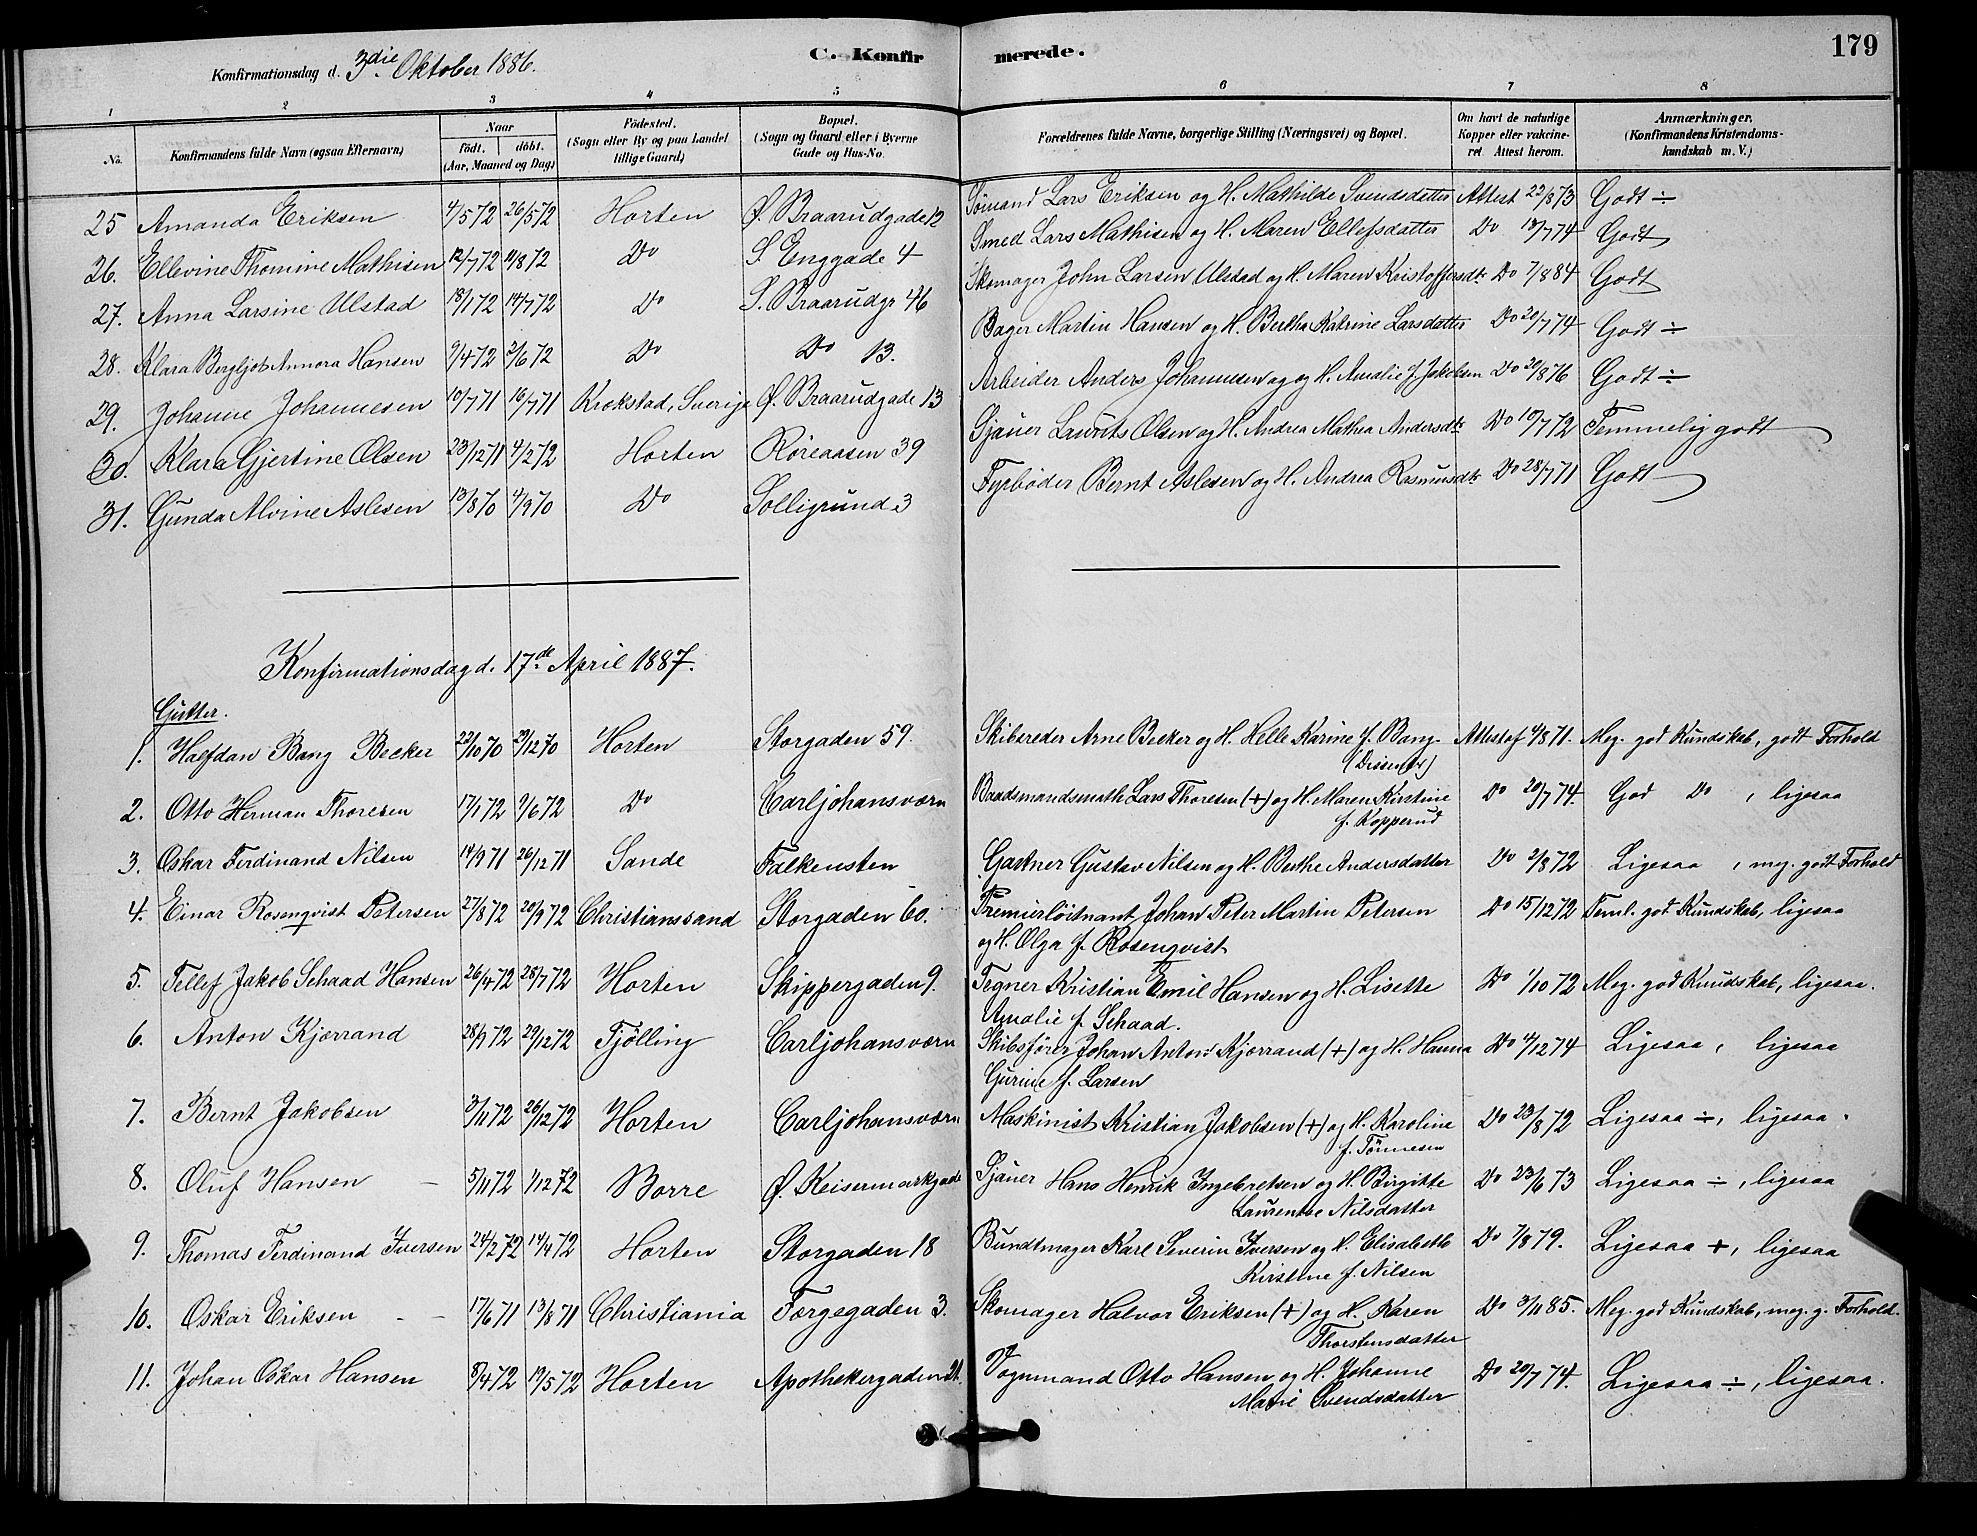 179
Konfirmationsdag d. 3die Oktober 1886.
C. Konfirmerede.
1 2 3 4 5 6 7 8
No. Konfirmandens fulde Navn (ogsaa Efternavn) Naar født. døbt. (Aar, Maaned og Dag) Fødested. (Sogn eller By og paa Landet tillige Gaard) Bopæl. (Sogn og Gaard eller i Byerne Gade og Hus-No. Forældrenes fulde Navne, borgerlige Stilling (Næringsvei) og Bopæl. Om havt de naturlige Kopper eller vakcineret. Attest herom. Anmærkninger. (Konfirmandens Kristendomskundskab m. V.)
25 Amanda Eriksen 4/5 72 26/5 72 Horten Ø. Braarudgade 12 Sømand Lars Eriksen og H. Mathilde Svendsdatter Attest 22/8 73 Godt ÷
26. Ellevine Thomine Mathisen 12/7 72 11/8 72 Do S. Enggade 4 Smed Lars Mathisen og H. Maren Ellefsdatter Do 18/7 74 Godt
27. Anna Larsine Ulstad 18/1 72 14/7 72 Do S. Braarudgr 46 Skomager John Larsen Ulstad og H. Maren Kristoffersdtr Do 7/8 84 Godt
28. Klara Bergljot Annora Hansen 9/4 72 2/6 72 Do Do 13. Bager Martin Hansen og H. Bertha Katrine Larsdatter Do 20/7 74 Godt ÷
29. Johanne Johannesen 10/7 71 16/7 71 Krokstad, Sverige Ø. Braarudgade 13 Arbeider Anders Johannesen og og H. Amalie f. Jakobsen Do 20/8 76 Godt ÷
30. Klara Gjertine Olsen 23/12 71 4/2 72 Horten Røreaasen 39 Sjauer Laurits Olsen og H. Andrea Mathea Andersdtr Do 10/7 72 Temmelig godt
31. Gunda Alvine Aslesen 13/8 70 4/9 70 Do Solligrund 3 Fyrbøder Bernt Aslesen og H. Andrea Rasmusdtr Do 28/7 71 Godt
Konfirmationsdag d. 17de April 1887.
Gutter.
1. Halfdan Bang Becker 22/10 70 29/12 70 Horten Storgaden 59. Skibsreder Arne Becker og H. Helle Karine f. Bang Attest af 4/8 71. Meg. god Kundskab, godt Forhold
(Dissenter)
2. Otto Herman Thoresen 17/1 72 9/6 72 Do Carljohansværn Baadsmandsmath Lars Thoresen (+) og H. Maren Kirstine Do 20/7 74. God Do, ligesaa
f. Kopperud
3. Oskar Ferdinand Nilsen 14/9 71 26/12 71 Sande Falkensten Gartner Gustav Nilsen og H. Berthe Andersdatter Do 2/8 72 Ligesaa, meg. godt Forhold
4. Einar Rosenqvist Petersen 27/8 72 20/9 72 Christianssand Storgaden 60. Premierløitnant Johan Peter Martin Petersen Do 15/12 72 Teml. god Kundskab, ligesaa
og H. Olga f. Rosenqvist
5. Tellef Jakob Schaad Hansen 26/4 72 28/7 72 Horten Skippergaden 9. Tegner Kristian Emil Hansen og H. Lisette Do 1/10 72 Meg. god Kundskab, ligesaa.
Amalie f. Schaad.
6. Anton Kjærrand 28/9 72 29/12 72 Tjølling Carljohansværn Skibsfører Johan Anton Kjærrand (+) og H. Hanna Do 4/12 74 Ligesaa, ligesaa
Gurine f. Larsen
7. Bernt Jakobsen 3/11 72 26/12 72 Horten Carljohansværn Maskinist Kristian Jakobsen (+) og H. Karoline Do 23/8 72 Ligesaa ÷, ligesaa.
f. Tønnesen
8. Oluf Hansen – 5/11 72 1/12 72 Borre Ø. Keisermarkgade Sjauer Hans Henrik Ingebretsen og H. Birgitte Do 23/6 73 Ligesaa ÷, ligesaa
Laurentse Nilsdatter
9. Thomas Ferdinand Iversen 24/2 72 14/4 72 Horten Storgaden 18 Bundtmager Karl Severin Iversen og H. Elisabeth Do 7/8 79. Ligesaa +, ligesaa
Kirstine f. Nilsen
10. Oskar Eriksen – – 17/6 71 13/8 71 Christiania Torgegaden 3. Skomager Halvor Eriksen (+) og H. Karen Do 3/11 85. Meg. god Kundskab, meg. g. Forhold.
Thorstensdatter
11. Johan Oskar Hansen 8/4 72 19/5 72 Horten Apothekergaden 21. Vognmand Otto Hansen og H. Johanne Do 20/7 74. Ligesaa ÷, ligesaa.
Marie Svendsdatter